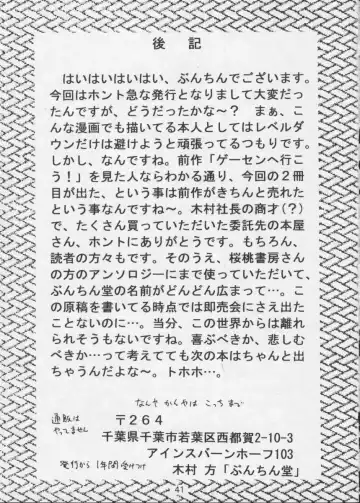 後記
はいはいはいはい、ぶんちんでございます。
今回はホント急な発行となりまして大変だっ
たんですが、どうだったかな～？　まぁ、こ
んな漫画でも描いてる本人としてはレベルダ
ウンだけは避けようと頑張ってるつもりです。
しかし、なんですね。前作「ゲーセンへ行こ
う！」を見た人ならわかる通り、今回の２冊
目が出た、という事は前作がきちんと売れた
という事なんですね～。木村社長の商才（？）
で、たくさん買っていただいた委託先の本屋
さん、ホントにありがとうです。もちろん、
読者の方々もです。そのうえ、桜桃書房さん
の方のアンソロジーにまで使っていただいて、
ぶんちん堂の名前がどんどん広まって…。こ
の原稿を書いてる時点では即売会にさえ出た
ことないのに…。当分、この世界からは離れ
られそうもないですね。喜ぶべきか、悲しむ
べきか…って考えてても次の本はちゃんと出
ちゃうんだよな～。トホホ…。
こっちまで
通販は
やってません
〒２６４
千葉県千葉市若葉区西都賀2-10-3
アインスバーンホーフ103
発行から1年間受けつけ
木村　方「ぶんちん堂」
41